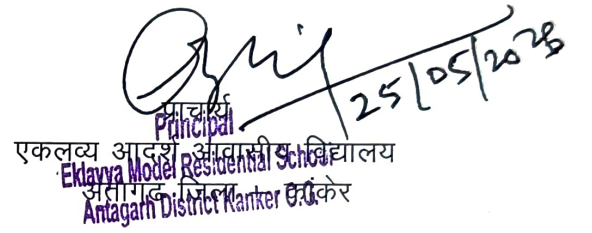 25/05/2026
प्राचार्य
Principal
एकलव्य आदर्श आवासीय विद्यालय
Eklavya Model Residential School
अंतागढ़ जिला कांकेर
Antagarh District Kanker C.G.